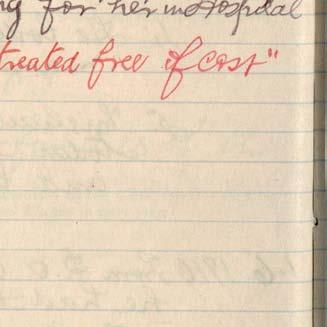 for her in Hospital
treated free of cost"